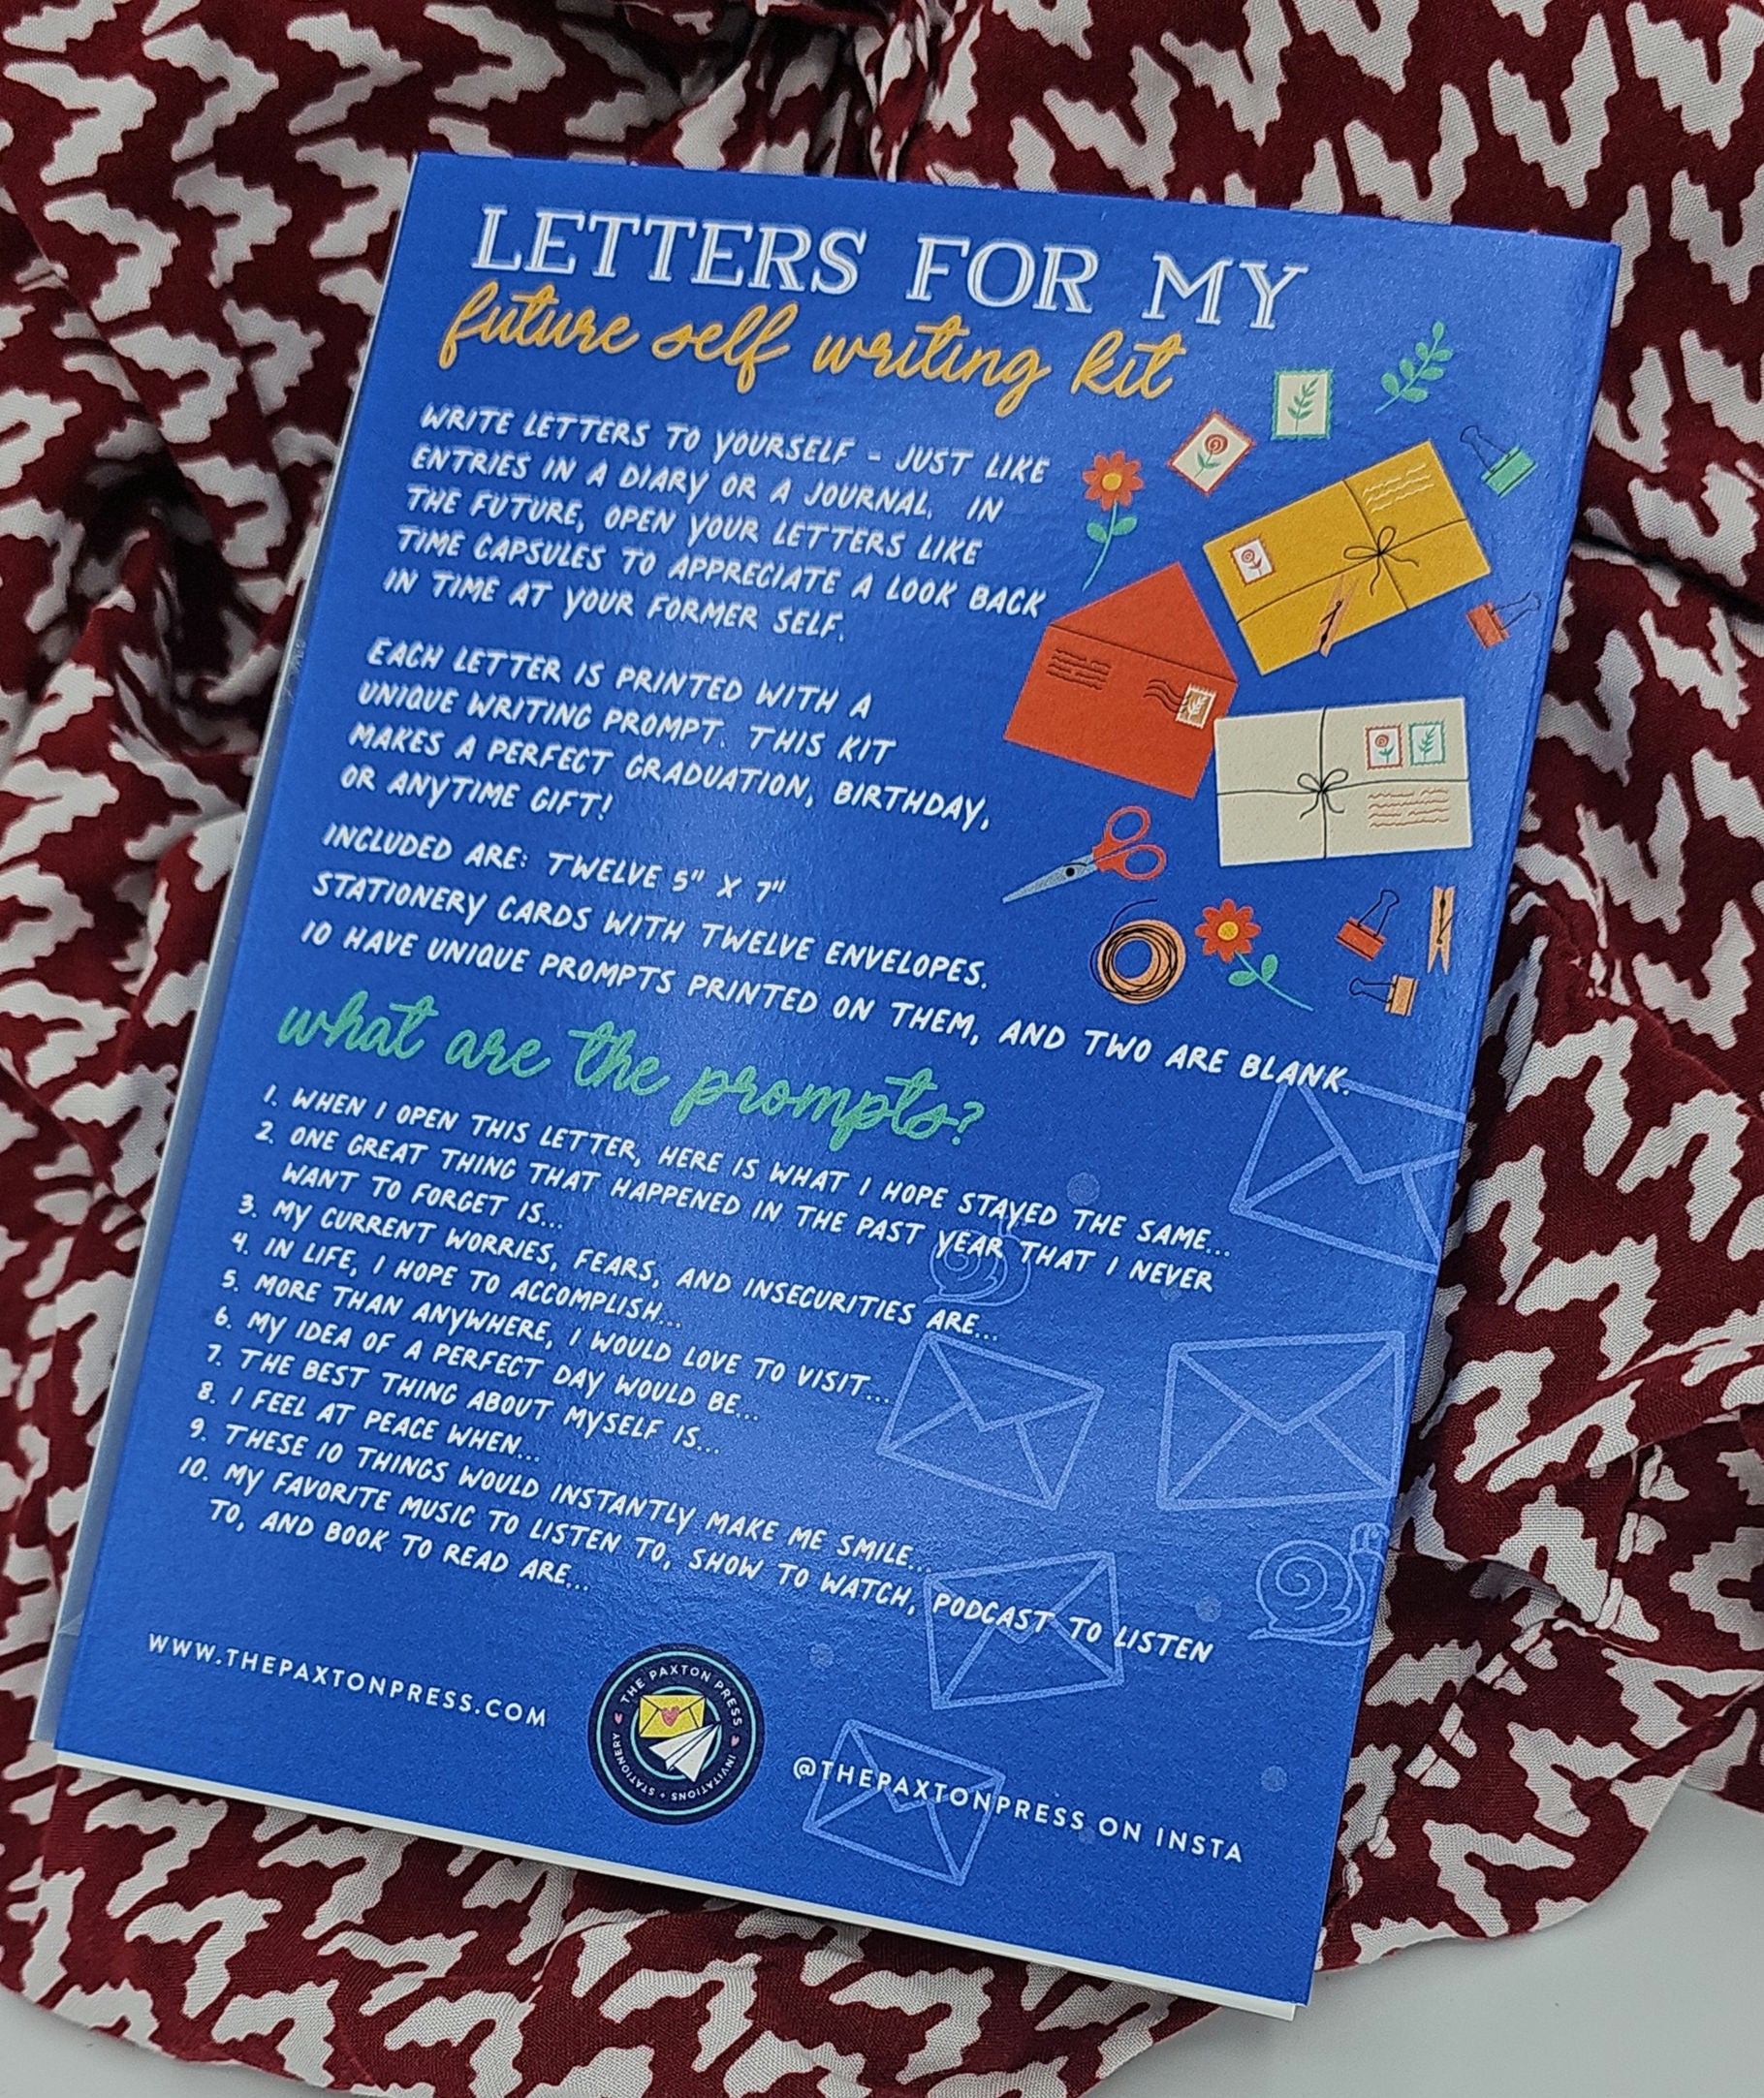 LETTERS FOR MY
future self writing kit
WRITE LETTERS TO YOURSELF - JUST LIKE
ENTRIES IN A DIARY OR A JOURNAL. IN
THE FUTURE, OPEN YOUR LETTERS LIKE
TIME CAPSULES TO APPRECIATE A LOOK BACK
IN TIME AT YOUR FORMER SELF.
EACH LETTER IS PRINTED WITH A
UNIQUE WRITING PROMPT. THIS KIT
MAKES A PERFECT GRADUATION, BIRTHDAY,
OR ANYTIME GIFT!
INCLUDED ARE: TWELVE 5" X 7"
STATIONERY CARDS WITH TWELVE ENVELOPES.
10 HAVE UNIQUE PROMPTS PRINTED ON THEM, AND TWO ARE BLANK.
what are the prompts?
1. WHEN I OPEN THIS LETTER, HERE IS WHAT I HOPE STAYED THE SAME...
2. ONE GREAT THING THAT HAPPENED IN THE PAST YEAR THAT I NEVER
WANT TO FORGET IS...
3. MY CURRENT WORRIES, FEARS, AND INSECURITIES ARE...
4. IN LIFE, I HOPE TO ACCOMPLISH...
5. MORE THAN ANYWHERE, I WOULD LOVE TO VISIT...
6. MY IDEA OF A PERFECT DAY WOULD BE...
7. THE BEST THING ABOUT MYSELF IS...
8. I FEEL AT PEACE WHEN...
9. THESE 10 THINGS WOULD INSTANTLY MAKE ME SMILE...
10. MY FAVORITE MUSIC TO LISTEN TO, SHOW TO WATCH, PODCAST TO LISTEN
TO, AND BOOK TO READ ARE...
WWW.THEPAXTONPRESS.COM
THE PAXTON PRESS
INVITATIONS + STATIONERY
@THEPAXTONPRESS ON INSTA